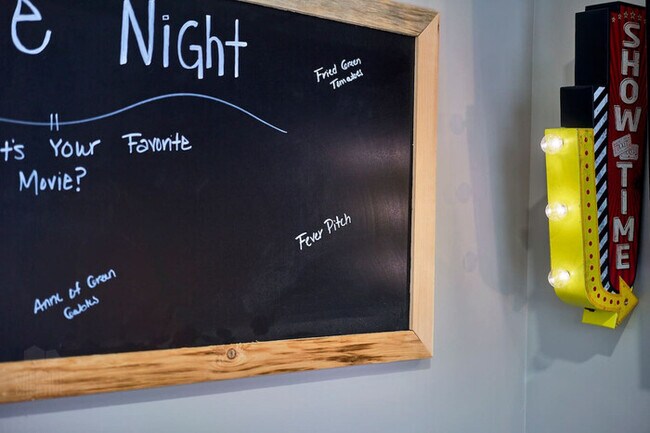 e Night
Fried Green
Tomatoes
t's Your Favorite
Movie?
Fever Pitch
Anne of Green
Gables
SHOW
TIME